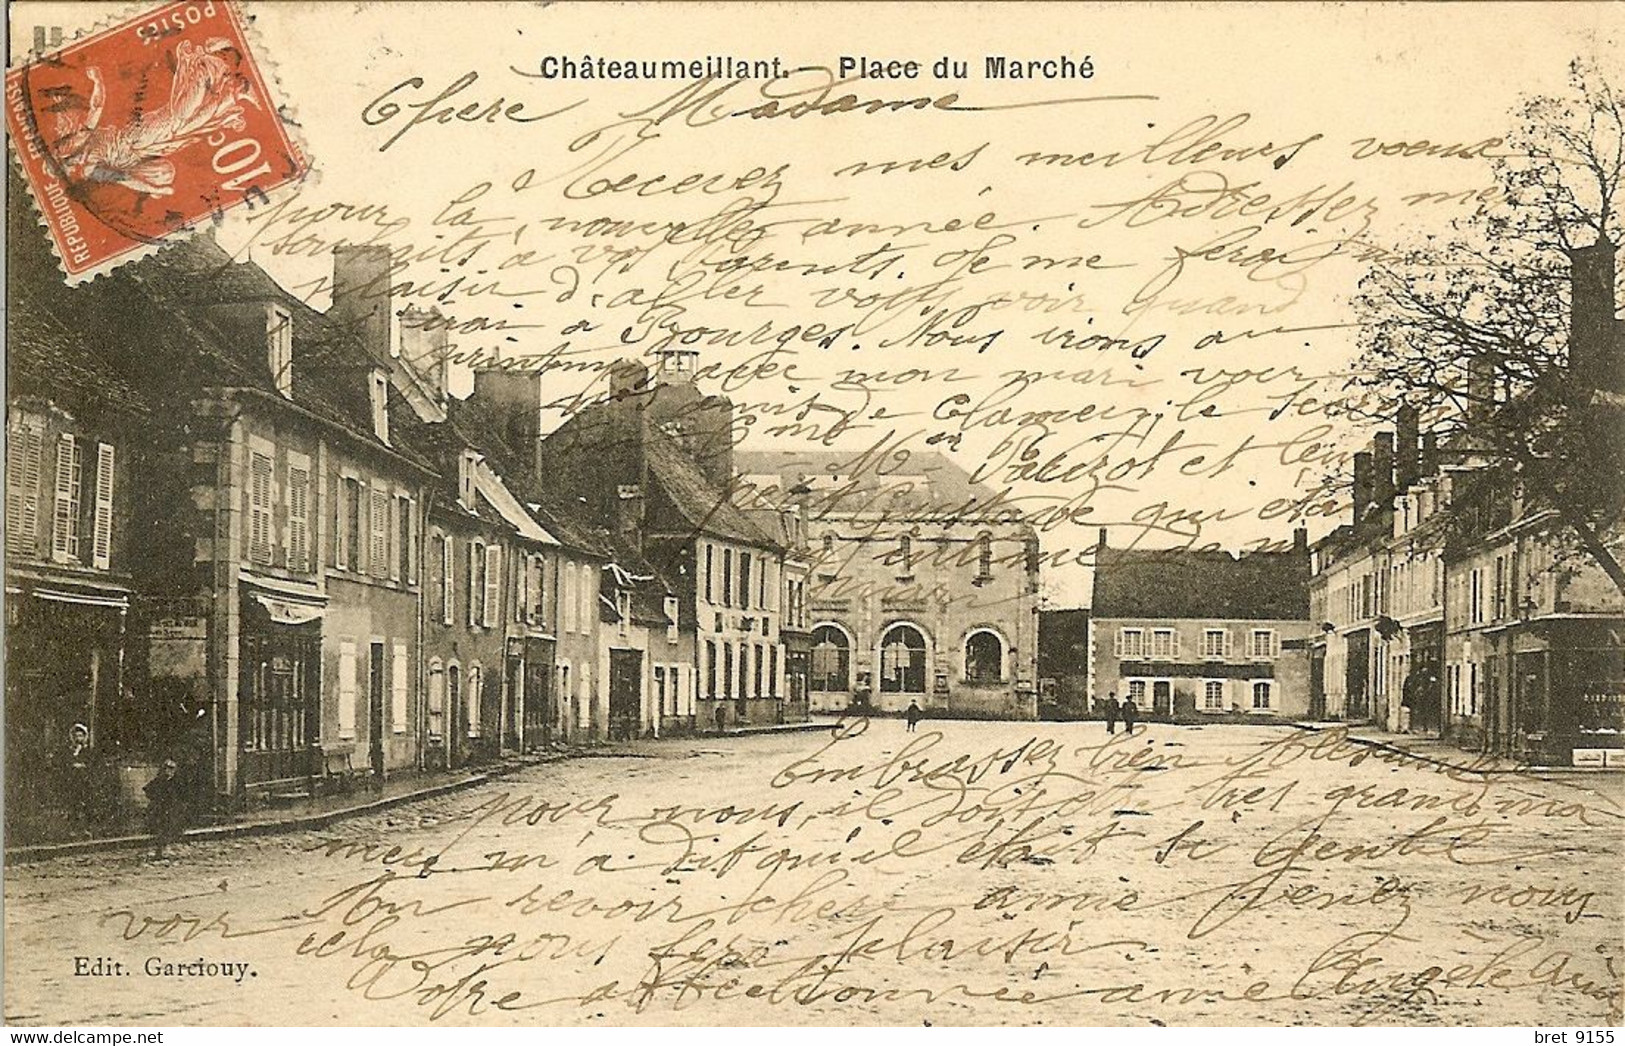 POSTES
10c
REPUBLIQUE FRANÇAISE
Châteaumeillant. — Place du Marché
Chere Madame
Recevez mes meilleurs voeux
pour la nouvelle année. Adressez mes
souhaits à vos Parents. Je me ferai un
plaisir d'aller vous voir quand
irai à Bourges. Nous irons au
printemps avec mon mari voir
nos amis de Clamecy, le
Mr Cme Parizot et leur
petit Gustave qui était
intime de mon
mari
Embrassez bien Alexandre
pour nous, il doit être très grand ma
mere m'a dit qu'il était si gentil
Au revoir chere amie Venez nous
voir cela nous fera plaisir.
Votre affectionnée amie Angèle
Edit. Garciouy.
bret 9155